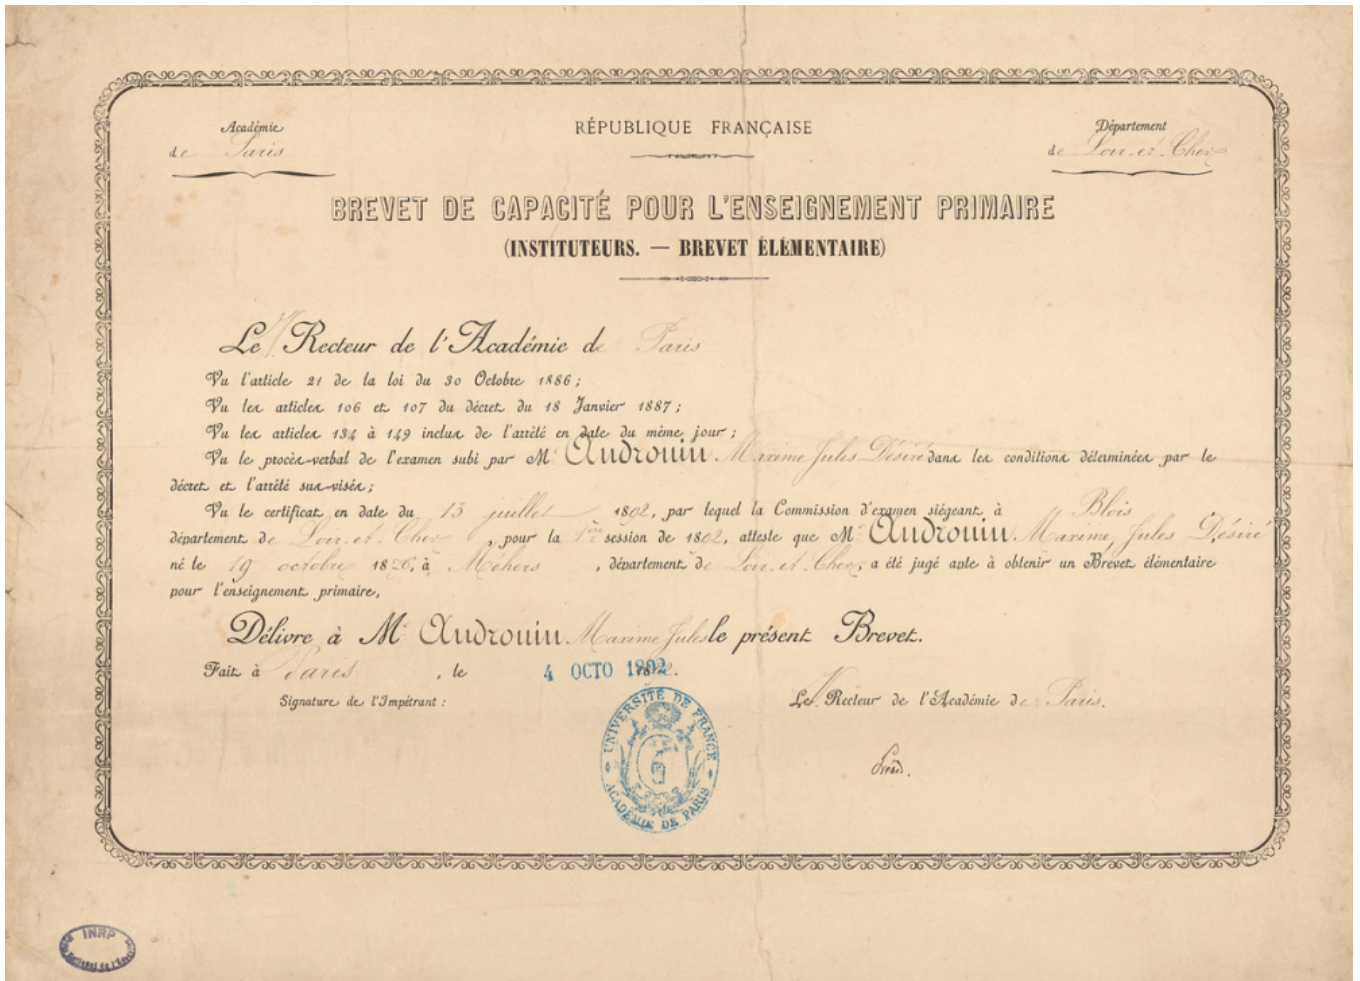 Académie
de Paris
RÉPUBLIQUE FRANÇAISE
Département
de Loir-et-Cher
BREVET DE CAPACITÉ POUR L'ENSEIGNEMENT PRIMAIRE
(INSTITUTEURS. — BREVET ÉLÉMENTAIRE)
Le Recteur de l'Académie de Paris
Vu l'article 21 de la loi du 30 Octobre 1886;
Vu les articles 106 et 107 du décret du 18 Janvier 1887;
Vu les articles 134 à 149 inclus de l'arrêté en date du même jour;
Vu le procès-verbal de l'examen subi par Mr Audrouin Maxime Jules Désiré dans les conditions déterminées par le
décret et l'arrêté sus-visés;
Vu le certificat en date du 13 juillet 1892, par lequel la Commission d'examen siégeant à Blois
département de Loir-et-Cher, pour la 1ère session de 1892, atteste que Mr Audrouin Maxime Jules Désiré
né le 19 octobre 1876, à Méhers, département de Loir-et-Cher, a été jugé apte à obtenir un Brevet élémentaire
pour l'enseignement primaire,
Délivre à Mr Audrouin Maxime Jules le présent Brevet.
Fait à Paris, le 4 OCTO 1892.
Signature de l'Impétrant :
Le Recteur de l'Académie de Paris.
UNIVERSITÉ DE FRANCE
ACADÉMIE DE PARIS
Gréard.
INRP